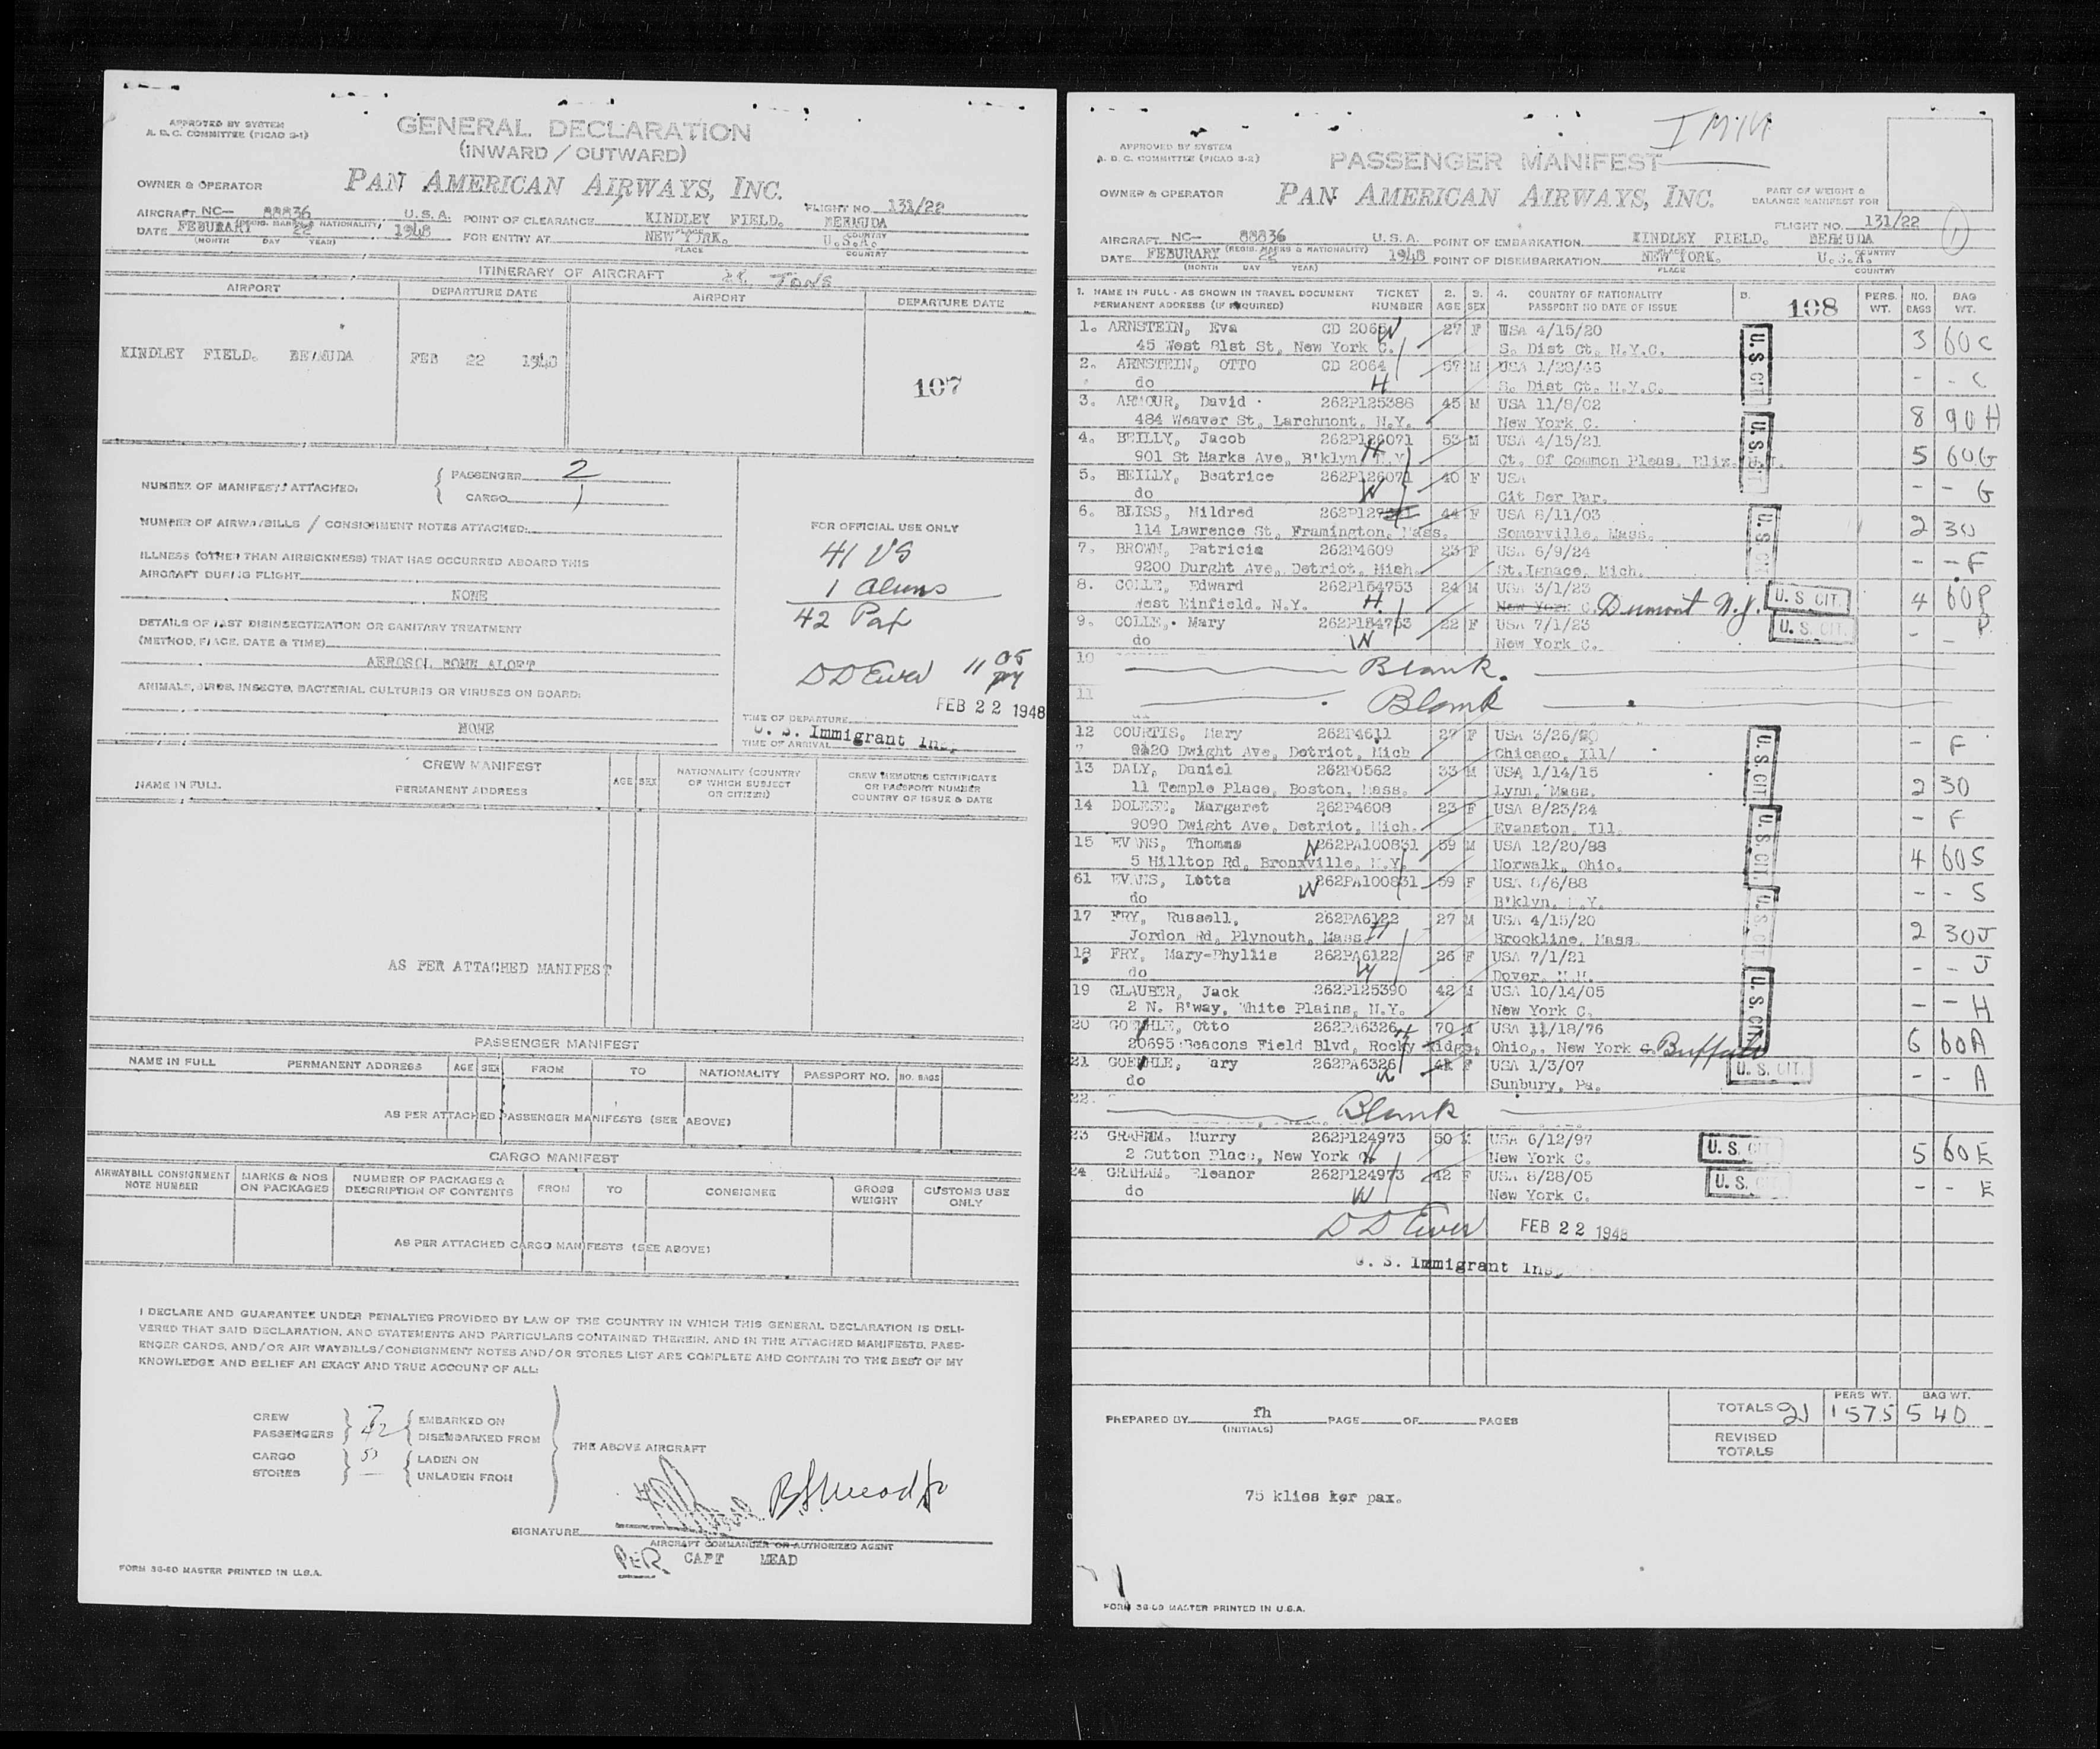 APPROVED BY SYSTEM
A. D. C. COMMITTEE (PICAO 2-1)
GENERAL DECLARATION
(INWARD / OUTWARD)
OWNER & OPERATOR PAN AMERICAN AIRWAYS, INC.
FLIGHT NO. 131/22
AIRCRAFT NC- 88836 U. S. A. POINT OF CLEARANCE KINDLEY FIELD. BERMUDA
(REGIS. MARKS & NATIONALITY) PLACE COUNTRY
DATE FEBURARY 22 1948 FOR ENTRY AT NEW YORK. U.S.A.
(MONTH DAY YEAR) PLACE COUNTRY
ITINERARY OF AIRCRAFT
AIRPORT DEPARTURE DATE AIRPORT DEPARTURE DATE
KINDLEY FIELD. BERMUDA FEB 22 1948
107
NUMBER OF MANIFESTS ATTACHED: PASSENGER 2
CARGO 1
NUMBER OF AIRWAYBILLS / CONSIGNMENT NOTES ATTACHED:
ILLNESS (OTHER THAN AIRSICKNESS) THAT HAS OCCURRED ABOARD THIS
AIRCRAFT DURING FLIGHT
NONE
DETAILS OF LAST DISINSECTIZATION OR SANITARY TREATMENT
(METHOD, PLACE, DATE & TIME)
AEROSOL BOMB ALOFT
ANIMALS, BIRDS, INSECTS, BACTERIAL CULTURES OR VIRUSES ON BOARD:
NONE
FOR OFFICIAL USE ONLY
41 US
1 Aliens
42 Pax
D D Ewer 11 05 PM
FEB 22 1948
TIME OF DEPARTURE
U. S. Immigrant Insp
TIME OF ARRIVAL
CREW MANIFEST
NAME IN FULL PERMANENT ADDRESS AGE SEX NATIONALITY (COUNTRY OF WHICH SUBJECT OR CITIZEN) CREW MEMBERS CERTIFICATE OR PASSPORT NUMBER COUNTRY OF ISSUE & DATE
AS PER ATTACHED MANIFEST
PASSENGER MANIFEST
NAME IN FULL PERMANENT ADDRESS AGE SEX FROM TO NATIONALITY PASSPORT NO. NO. BAGS
AS PER ATTACHED PASSENGER MANIFESTS (SEE ABOVE)
CARGO MANIFEST
AIRWAYBILL CONSIGNMENT NOTE NUMBER MARKS & NOS ON PACKAGES NUMBER OF PACKAGES & DESCRIPTION OF CONTENTS FROM TO CONSIGNEE GROSS WEIGHT CUSTOMS USE ONLY
AS PER ATTACHED CARGO MANIFESTS (SEE ABOVE)
I DECLARE AND GUARANTEE UNDER PENALTIES PROVIDED BY LAW OF THE COUNTRY IN WHICH THIS GENERAL DECLARATION IS DELI-
VERED THAT SAID DECLARATION, AND STATEMENTS AND PARTICULARS CONTAINED THEREIN, AND IN THE ATTACHED MANIFESTS, PASS-
ENGER CARDS, AND/OR AIR WAYBILLS/CONSIGNMENT NOTES AND/OR STORES LIST ARE COMPLETE AND CONTAIN TO THE BEST OF MY
KNOWLEDGE AND BELIEF AN EXACT AND TRUE ACCOUNT OF ALL:
CREW 7 EMBARKED ON
PASSENGERS 42 DISEMBARKED FROM
THE ABOVE AIRCRAFT
CARGO LADEN ON
STORES — UNLADEN FROM
SIGNATURE
AIRCRAFT COMMANDER OR AUTHORIZED AGENT
PER CAPT MEAD
FORM 36-60 MASTER PRINTED IN U.S.A.
IMM
APPROVED BY SYSTEM
A. D. C. COMMITTEE (PICAO 2-2)
PASSENGER MANIFEST
OWNER & OPERATOR PAN AMERICAN AIRWAYS, INC.
PART OF WEIGHT &
BALANCE MANIFEST FOR
FLIGHT NO. 131/22
AIRCRAFT NC- 88836 U. S. A. POINT OF EMBARKATION KINDLEY FIELD. BERMUDA
(REGIS. MARKS & NATIONALITY) PLACE COUNTRY
DATE FEBURARY 22 1948 POINT OF DISEMBARKATION NEW YORK. U.S.A.
(MONTH DAY YEAR) PLACE COUNTRY
1. NAME IN FULL - AS SHOWN IN TRAVEL DOCUMENT TICKET 2. 3. 4. COUNTRY OF NATIONALITY 5. 108 PERS. NO. BAG
PERMANENT ADDRESS (IF REQUIRED) NUMBER AGE SEX PASSPORT NO DATE OF ISSUE WT. BAGS WT.
1. ARNSTEIN, Eva CD 2065 W 27 F USA 4/15/20 3 60 C
45 West 81st St, New York C. S. Dist Ct, N.Y.C.
2. ARNSTEIN, OTTO CD 2064 57 M USA 1/28/46 - - C
do H S. Dist Ct, N.Y.C.
3. ARMOUR, David 262P125388 45 M USA 11/8/02 8 90 H
484 Weaver St, Larchmont, N.Y. New York C.
4. BEILLY, Jacob 262P126071 53 M USA 4/15/21 5 60 G
901 St Marks Ave, B'klyn N.Y. H Ct. Of Common Pleas, Eliz.
5. BEILLY, Beatrice 262P126071 40 F USA - - G
do W Cit Der Par.
6. BLISS, Mildred 44 F USA 8/11/03 2 30
114 Lawrence St, Framington, Mass. Somerville, Mass.
7. BROWN, Patricia 262P4609 23 F USA 6/9/24 - - F
9200 Durght Ave, Detriot, Mich. St.Ignace, Mich.
8. COLLE, Edward 262P154753 24 M USA 3/1/23 4 60 P
West Einfield. N.Y. H New York C. Dumont N.J.
9. COLLE, Mary 262P154753 22 F USA 7/1/23 - - P
do W New York C.
10 Blank.
11 Blank
12 COURTIS, Mary 262P4611 27 F USA 3/26/20 - F
9120 Dwight Ave, Detriot, Mich Chicago, Ill/
13 DALY, Daniel 262P0562 33 M USA 1/14/15 2 30
11 Temple Place, Boston, Mass. Lynn, Mass.
14 DOLESE, Margaret 262P4608 23 F USA 8/23/24 - F
9090 Dwight Ave, Detriot, Mich. Evanston, Ill.
15 EVANS, Thomas 262PA100831 59 M USA 12/20/88 4 60 S
5 Hilltop Rd, Bronxville, N.Y. Norwalk, Ohio.
61 EVANS, Lotta W 262PA100831 59 F USA 8/6/88 - - S
do B'klyn, N.Y.
17 FRY, Russell, 262PA6122 27 M USA 4/15/20 2 30 J
Jordon Rd, Plynouth, Mass H Brookline, Mass.
18 FRY, Mary-Phyllis 262PA6122 26 F USA 7/1/21 - - J
do W Dover, N.H.
19 GLAUBER, Jack 262P125390 42 M USA 10/14/05 - - H
2 N. B'way, White Plains, N.Y. New York C.
20 Otto 262PA6326 H 70 M USA 11/18/76 6 60 A
20695 Beacons Field Blvd, Rocky Ridge, Ohio,, New York C. Buffalo
21 262PA6326 41 F USA 1/3/07 - - A
do W Sunbury, Pa.
22. Blank
23 GRAHAM, Murry 262P124973 50 M USA 6/12/97 5 60 E
2 Sutton Place, New York C. H New York C.
24 GRAHAM, Eleanor 262P124973 42 F USA 8/28/05 - - E
do W New York C.
U. S. CIT.
U. S. CIT.
U. S. CIT.
U. S. CIT.
U. S. CIT.
U. S. CIT.
U. S. CIT.
U. S. CIT.
U. S. CIT.
U. S. CIT.
U. S. CIT.
U. S. CIT.
D D Ewer FEB 22 1948
U. S. Immigrant Insp
PERS WT. BAG WT.
TOTALS 21 1575 540
REVISED
TOTALS
PREPARED BY fh PAGE OF PAGES
(INITIALS)
75 klios ker pax.
FORM 36-60 MASTER PRINTED IN U.S.A.